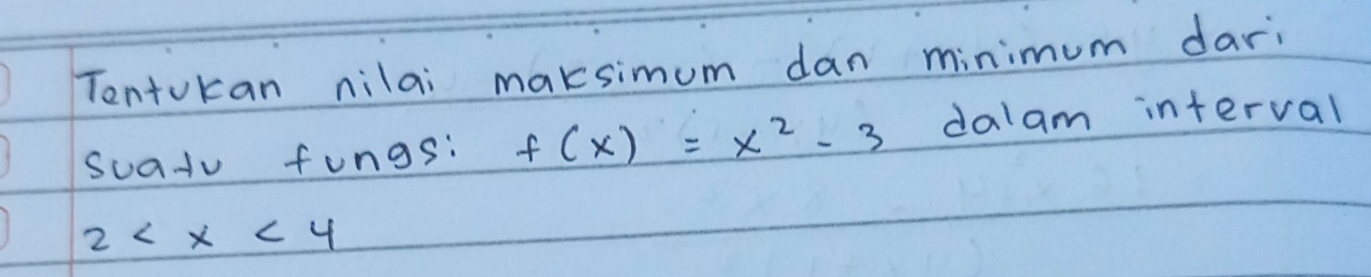 Tentukan nilai maksimum dan minimum dari
suatu fungsi f(x) = x² - 3 dalam interval
2 < x < 4